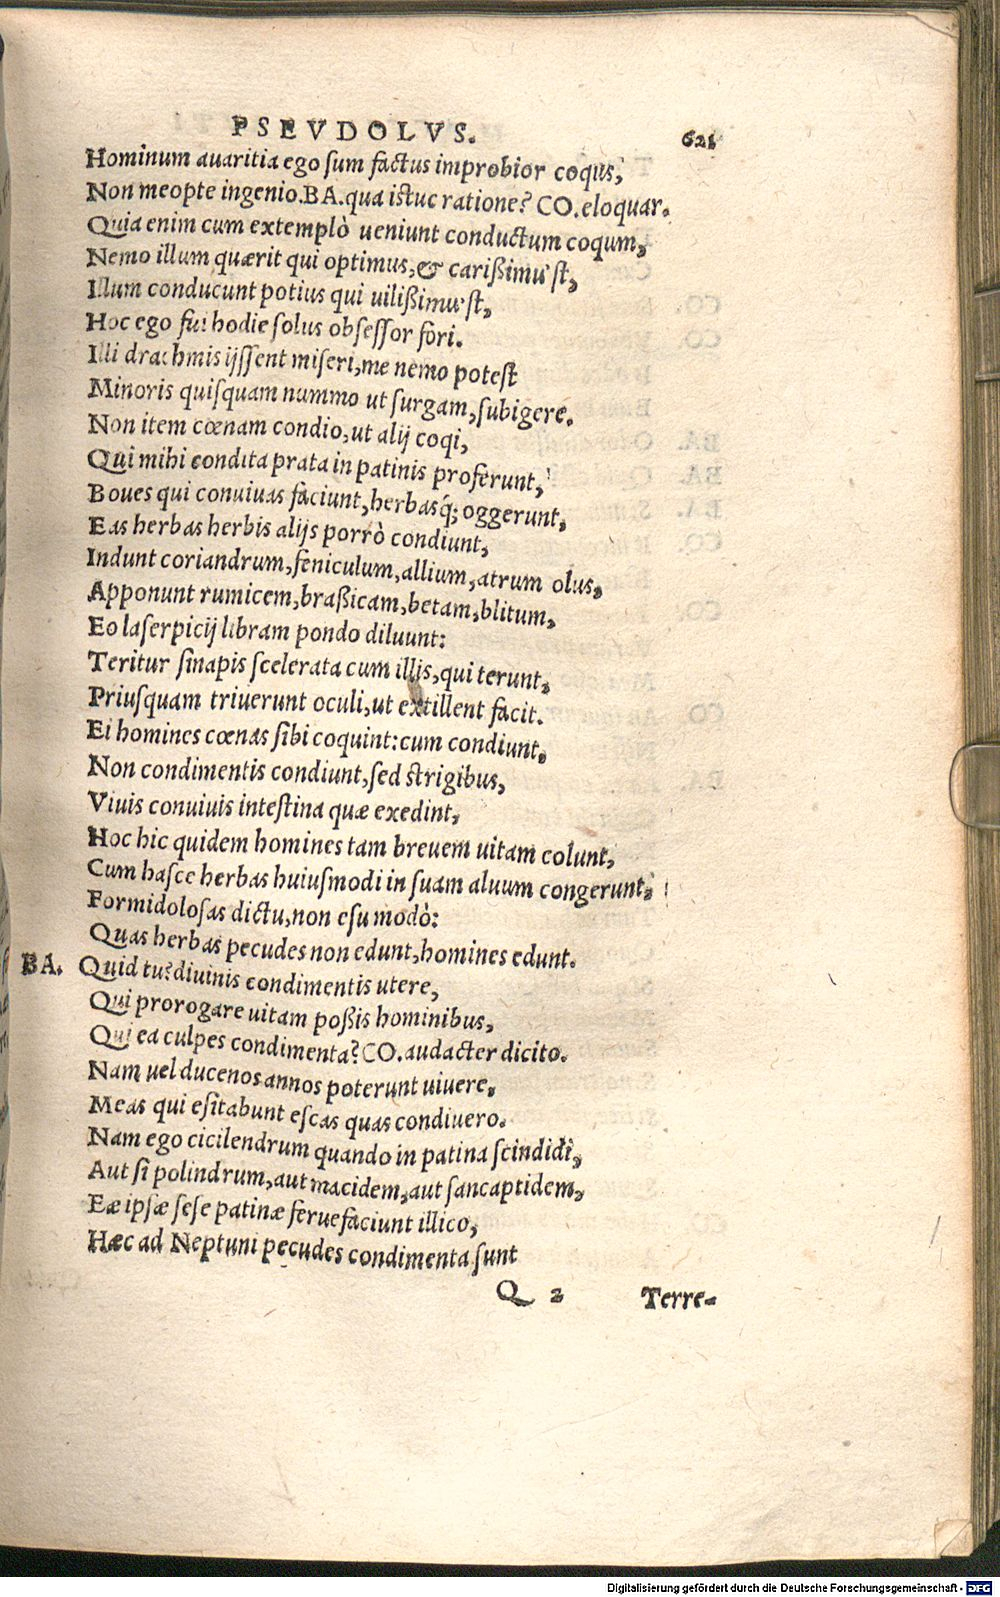 PSEVDOLVS. 621
Hominum auaritia ego ſum factus improbior coqus,
Non meopte ingenio. BA. qua istuc ratione? CO. eloquar.
Quia enim cum extemplò ueniunt conductum coqum,
Nemo illum quærit qui optimus, & carißimu'ſt,
Illum conducunt potius qui uilißimu'ſt,
Hoc ego fui hodie ſolus obſeſſor fori.
Illi drachmis ijſſent miſeri, me nemo poteſt
Minoris quiſquam nummo ut ſurgam, ſubigere.
Non item cœnam condio, ut alij coqi,
Qui mihi condita prata in patinis proferunt,
Boues qui conuiuas faciunt, herbasq́; oggerunt,
Eas herbas herbis alijs porrò condiunt,
Indunt coriandrum, feniculum, allium, atrum olus,
Apponunt rumicem, braßicam, betam, blitum,
Eo laſerpicij libram pondo diluunt:
Teritur ſinapis ſcelerata cum illis, qui terunt,
Priuſquam triuerunt oculi, ut extillent facit.
Ei homines cœnas ſibi coquint: cum condiunt,
Non condimentis condiunt, ſed ſtrigibus,
Viuis conuiuis inteſtina quæ exedint,
Hoc hic quidem homines tam breuem uitam colunt,
Cum haſce herbas huiuſmodi in ſuam aluum congerunt,
Formidoloſas dictu, non eſu modò:
Quas herbas pecudes non edunt, homines edunt.
BA. Quid tu? diuinis condimentis utere,
Qui prorogare uitam poßis hominibus,
Qui ea culpes condimenta? CO. audacter dicito.
Nam uel ducenos annos poterunt uiuere,
Meas qui eſitabunt eſcas quas condiuero.
Nam ego cicilendrum quando in patina ſcindidi,
Aut ſi polindrum, aut macidem, aut ſancaptidem,
Eæ ipſæ ſeſe patinæ feruefaciunt illico,
Hæc ad Neptuni pecudes condimenta ſunt
Q 2 Terre-
Digitalisierung gefördert durch die Deutsche Forschungsgemeinschaft - DFG